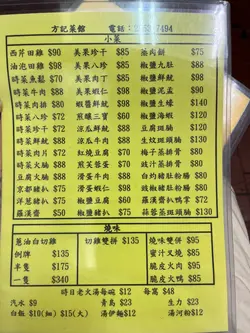 方記菜館 電話：2
7494
小菜
西芹田雞 $90 美果珍干 $85 蒸肉餅 $75
油泡田雞 $98 美果八珍 $85 椒鹽九肚 $88
時菜魚鬆 $70 美果肉丁 $85 椒鹽鮮魷 $98
時菜牛肉 $88 美果蝦仁 $85 椒鹽泥孟 $90
時菜肉排 $80 蝦醬鮮魷 $98 椒鹽生蠔 $140
時菜八珍 $72 煎釀三寶 $60 椒鹽海蝦 $120
時菜珍干 $72 涼瓜鮮魷 $88 豆腐斑腩 $120
時菜鮮魷 $88 涼瓜牛肉 $88 生炆斑頭腩 $130
時菜肉片 $72 紅燒豆腐 $60 梅子蒸排骨 $80
時菜火腩 $88 煎蛋角 $60 豉汁蒸排骨 $80
豆腐火腩 $88 滑蛋牛肉 $80 白灼豬肚粉腸 $80
京都豬扒 $75 滑蛋蝦仁 $80 豉椒豬肚粉腸 $80
洋蔥豬扒 $75 椒鹽豆腐 $60 羅漢齋扒鴨掌 $72
羅漢齋 $50 椒鹽豬扒 $75 蒜蓉蒸斑頭腩 $130
燒味
蔥油白切雞 切雞雙拼 $135 燒味雙併 $95
例牌 $135 蜜汁叉燒 $85
半隻 $175 脆皮火肉 $95
一隻 $340 脆皮火鴨 $85
時日老火湯每碗 $12 每窩 $48
汽水 $9 青島 $23 生力 $23
白飯 $10(細) $15(大) 湯伊麵$12 湯河粉$12